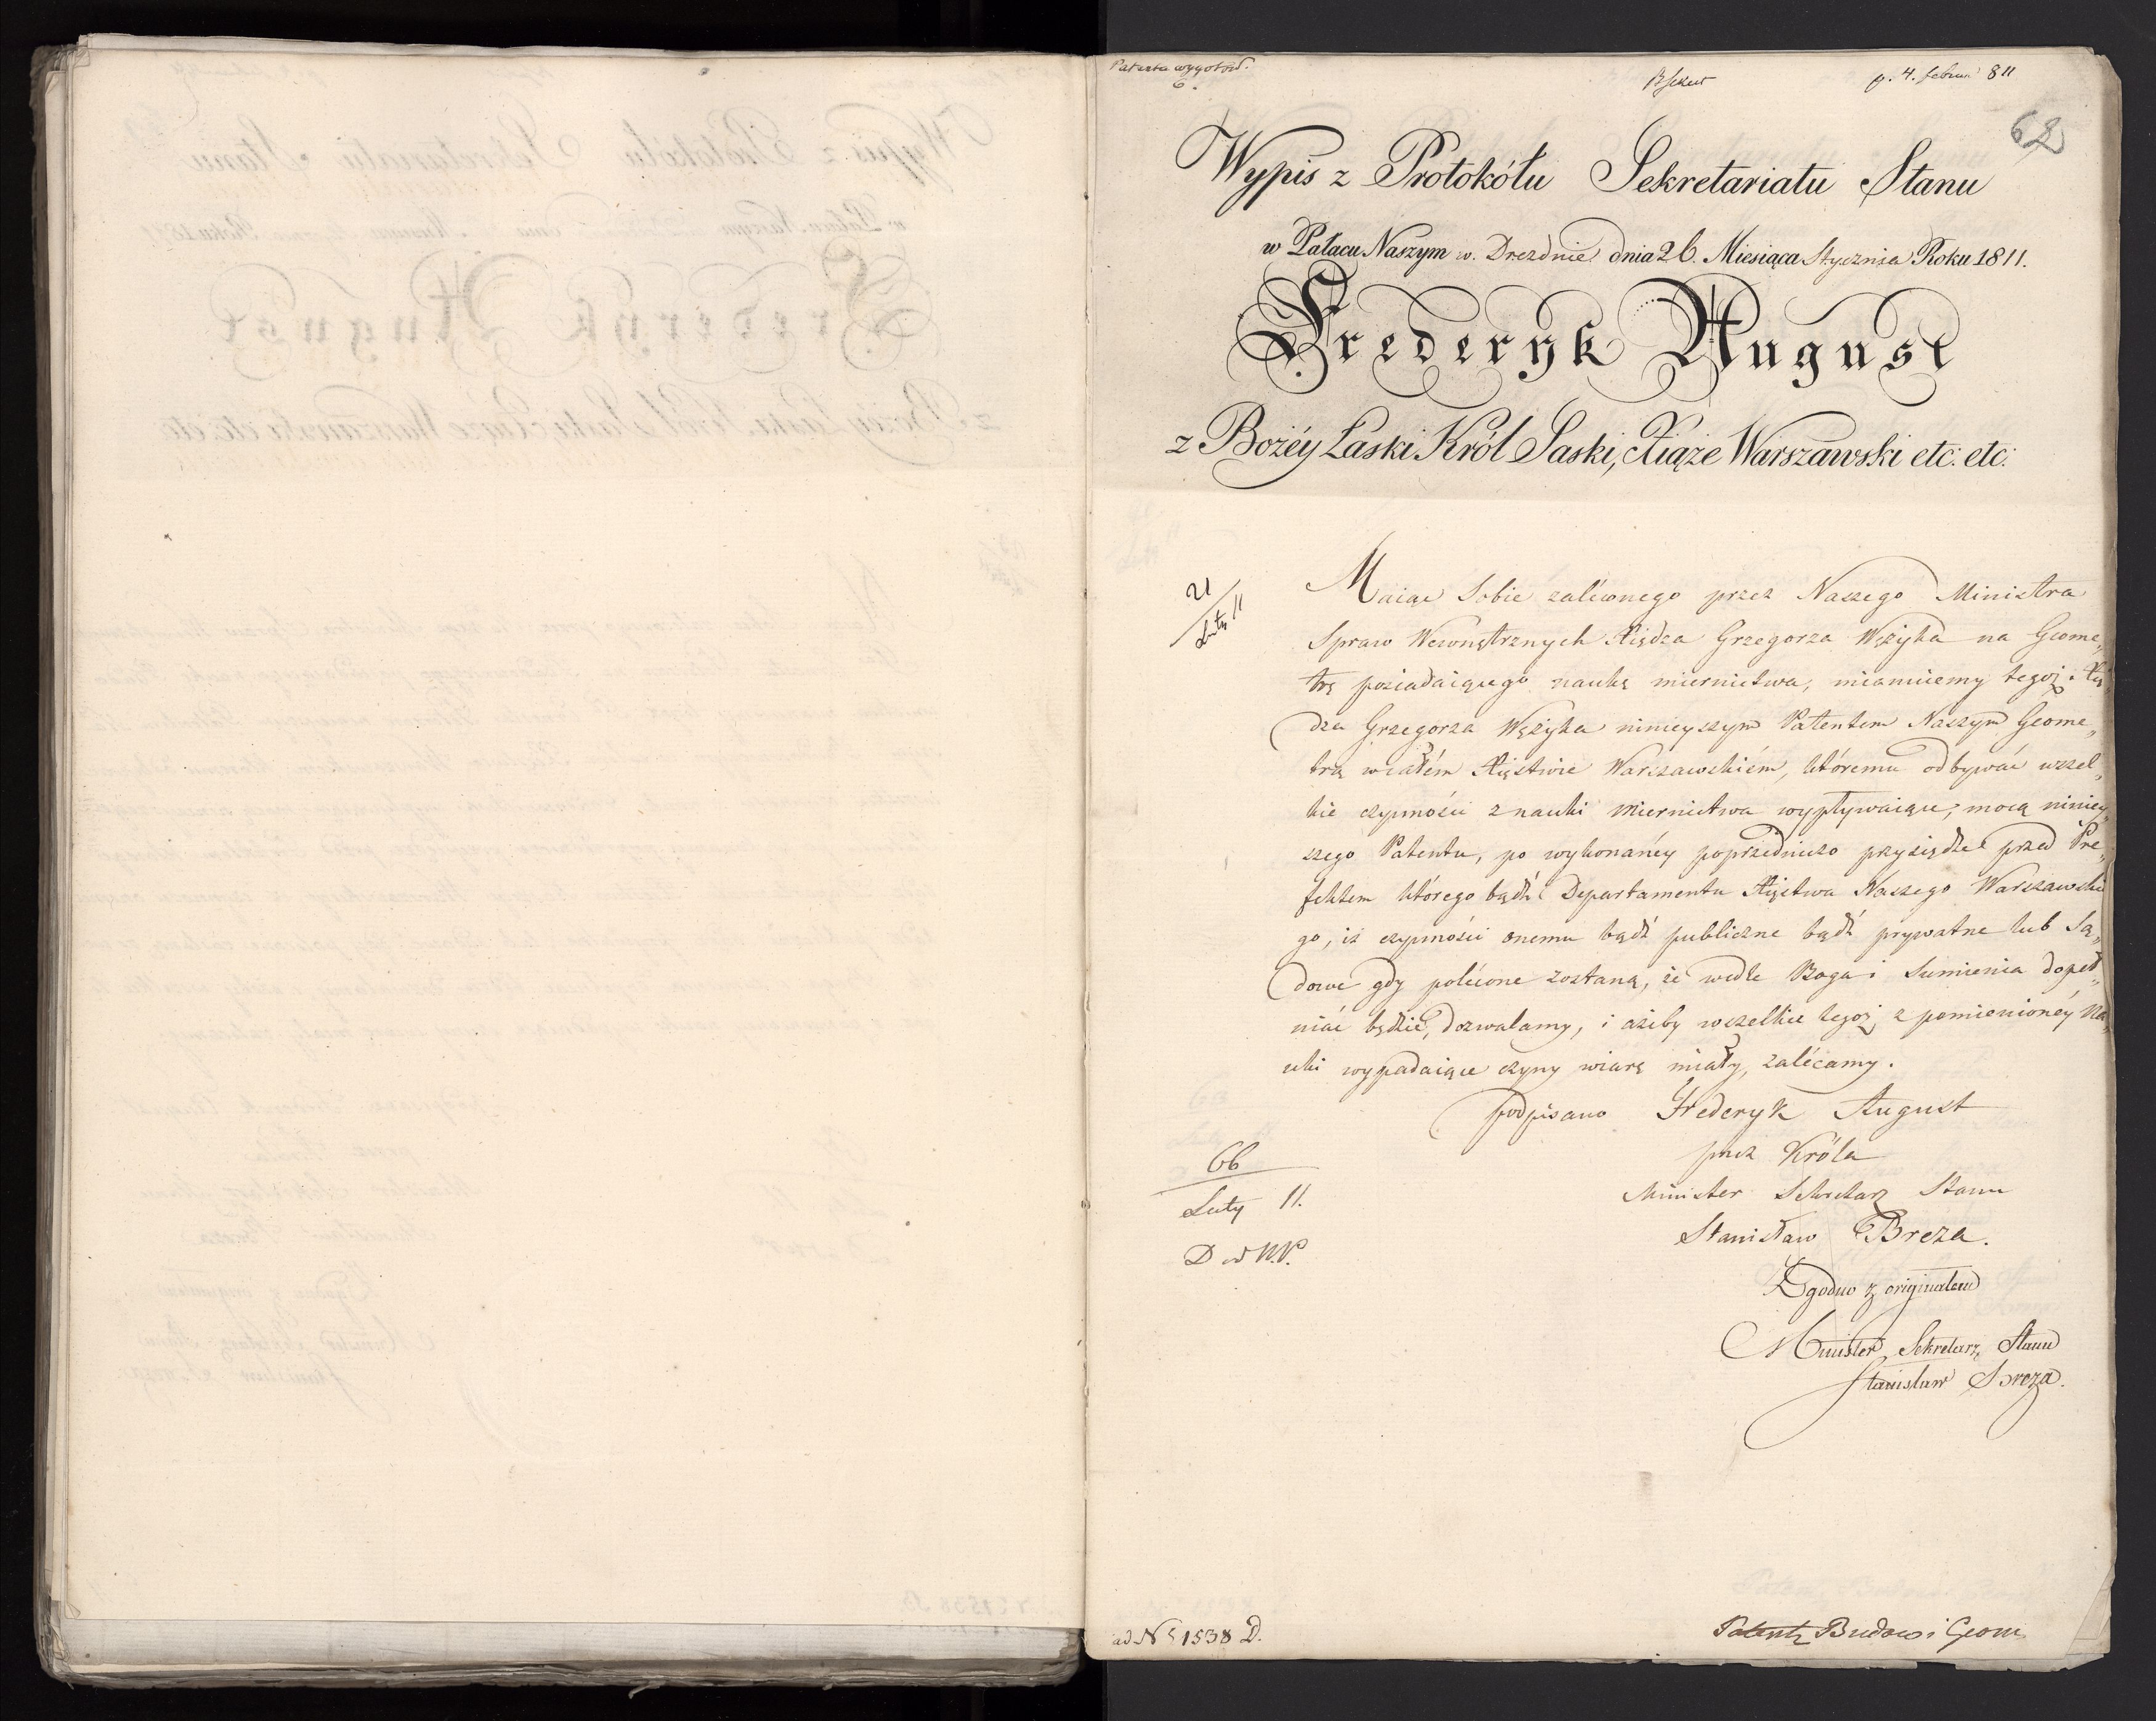 Patenta wygotow.
6.
p. 4. febru 811
62
Wypis z Protokółu Sekretariatu Stanu
w Pałacu Naszym w. Dreznie dnia 26. Miesiąca Stycznia Roku 1811.
Frederyk August
z Bożéy Łaski Król Saski, Xiąże Warszawski etc: etc:
21
Luty 11
Maiąc Sobie zaleconego przez Naszego Ministra
Spraw Wewnętrznych Xiędza Grzegorza Wężyka na Geome„
trę posiadaiącego naukę miernictwa, mianuiemy tegoż Xię
dza Grzegorza Wężyka ninieyszym Patentem Naszym Geome„
trą w całém Xięstwie Warszawskiém, któremu odbywać wszel„
kie czynności z nauki miernictwa wypływaiące, mocą niniey„
szego Patentu, po wykonanéy poprzedniczo przysiędze przed Pre„
fektem którego bądź Departamentu Xięstwa Naszego Warszawskie
go, iż czynności onemu bądź publiczne bądź prywatne lub Są„
dowe gdy polécone zostaną, że wedle Boga i Sumienia dopeł„
niać będzie, dozwalamy, i ażeby wszelkie tegoż z pomienionéy Na„
uki wypadaiące czyny wiarę miały, zalécamy.
podpisano Frederyk August
przez Króla
Minister Sekretarz Stanu
Stanisław Breza.
66
Luty 11.
D w N.P.
Zgodno z originałem
Minister Sekretarz Stanu
Stanisław Breza.
ad No 1538 D.
Patenta Budow i Geom